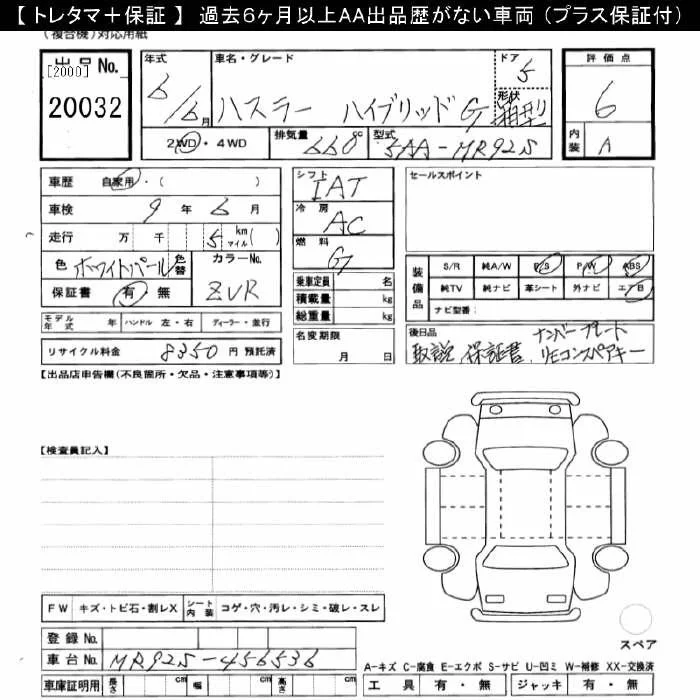 【 トレタマ＋保証 】 過去６ヶ月以上AA出品歴がない車両 （プラス保証付）
（複合機）対応用紙
出品No.
[2000]
20032
年式
6/6月
車名・グレード
ハスラー ハイブリッドG
ドア
5
形状
箱型
評価点
6
内装
A
2WD・4WD
排気量
660cc
型式
5AA-MR92S
車歴 自家用・( )
車検 9年 6月
走行 万 千 5 km マイル( )
色 ホワイトパール 色替
カラーNo.
ZVR
保証書 有・無
モデル年式 年 ハンドル 左・右 ディーラー・並行
リサイクル料金 8350 円 預託済
シフト
IAT
冷房
AC
燃料
G
乗車定員 名
積載量 kg
総重量 kg
名変期限
月 日
セールスポイント
装備品
S/R 純A/W P/S P/W ABS
純TV 純ナビ 革シート 外ナビ エアB
ナビ型番:
後日品
ナンバープレート
取説 保証書 リモコンスペアキー
【出品店申告欄(不良箇所・欠品・注意事項等)】
【検査員記入】
FW キズ・トビ石・割レX シート内装 コゲ・穴・汚レ・シミ・破レ・スレ
登録 No.
車台 No. MR92S-456536
車庫証明用 長さ cm 幅 cm 高さ cm
スペア
A-キズ C-腐食 E-エクボ S-サビ U-凹ミ W-補修 XX-交換済
工具 有・無 ジャッキ 有・無